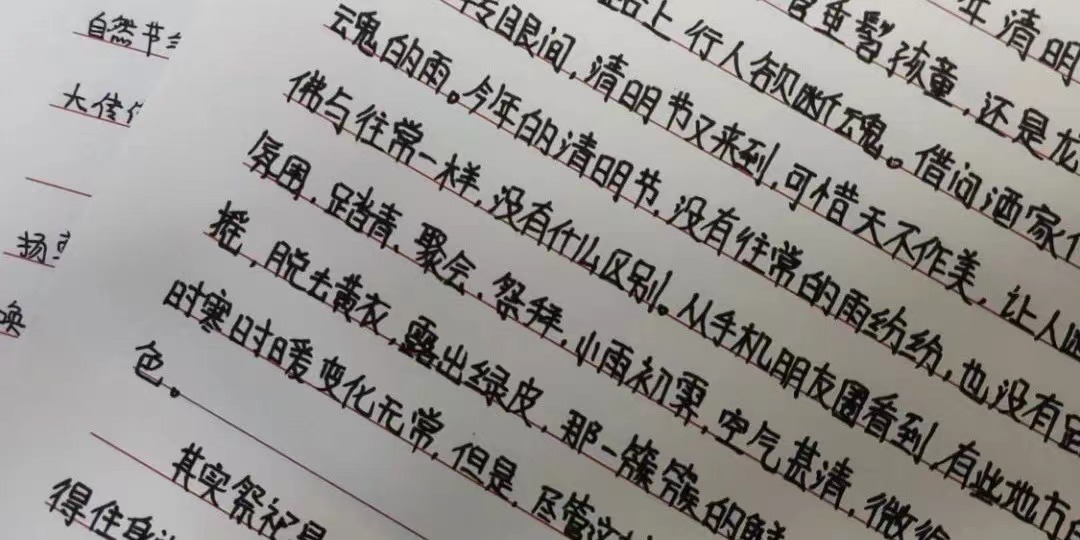 自然节
大传
扬
年清明
垂髫孩童，还是
路上行人欲断魂。借问酒家
转眼间，清明节又来到，可惜天不作美，让人
魂的雨。今年的清明节，没有往常的雨纷纷，也没有
佛与往常一样，没有什么区别。从手机朋友圈看到，有些地方
氛围，踏青、聚会、祭拜，小雨初霁，空气甚清，微
摇，脱去黄衣，露出绿皮，那一簇簇的
时寒时暖变化无常，但是，尽管
色。
其实祭祀是
得住